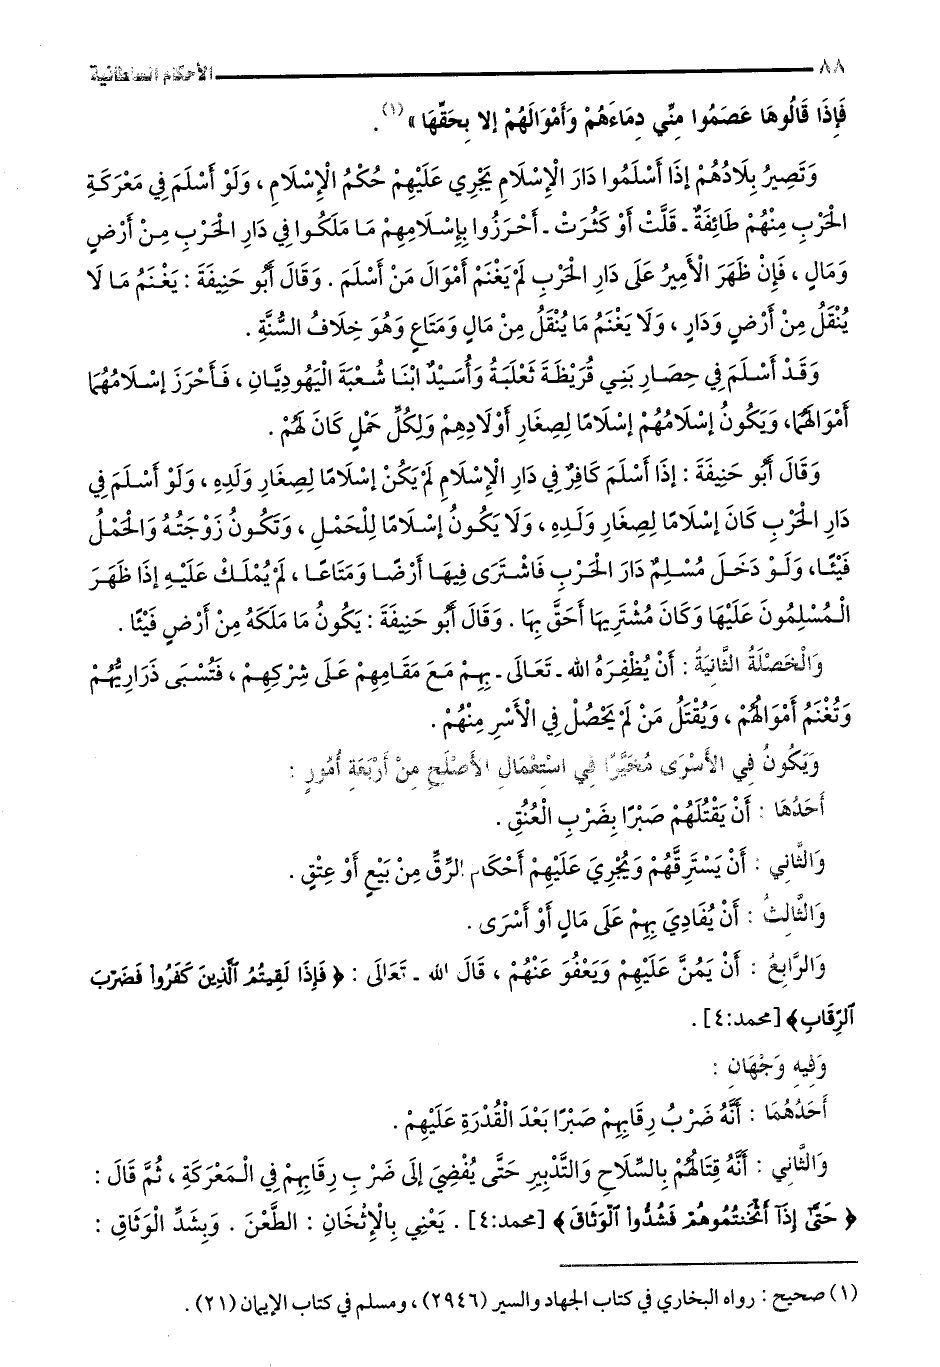 ٨٨ الأحكام السلطانية
فَإِذَا قَالُوهَا عَصَمُوا مِنِّي دِمَاءَهُمْ وَأَمْوَالَهُمْ إلا بِحَقِّهَا » (١) .
وَتَصِيرُ بِلَادُهُمْ إذَا أَسْلَمُوا دَارَ الْإِسْلَامِ يَجْرِي عَلَيْهِمْ حُكْمُ الْإِسْلَامِ ، وَلَوْ أَسْلَمَ فِي مَعْرَكَةِ
الْحَرْبِ مِنْهُمْ طَائِفَةٌ ـ قَلَّتْ أَوْ كَثُرَتْ ـ أَحْرَزُوا بِإِسْلَامِهِمْ مَا مَلَكُوا فِي دَارِ الْحَرْبِ مِنْ أَرْضٍ
وَمَالٍ ، فَإِنْ ظَهَرَ الْأَمِيرُ عَلَى دَارِ الْحَرْبِ لَمْ يَغْنَمْ أَمْوَالَ مَنْ أَسْلَمَ . وَقَالَ أَبُو حَنِيفَةَ : يَغْنَمُ مَا لَا
يُنْقَلُ مِنْ أَرْضٍ وَدَارٍ ، وَلَا يَغْنَمُ مَا يُنْقَلُ مِنْ مَالٍ وَمَتَاعٍ وَهُوَ خِلَافُ السُّنَّةِ .
وَقَدْ أَسْلَمَ فِي حِصَارِ بَنِي قُرَيْظَةَ ثَعْلَبَةُ وَأُسَيْدٌ ابْنَا شُعْبَةَ الْيَهُودِيَّانِ ، فَأَحْرَزَ إسْلَامُهُمَا
أَمْوَالَهُمَا، وَيَكُونُ إسْلَامُهُمْ إسْلَامًا لِصِغَارِ أَوْلَادِهِمْ وَلِكُلِّ حَمْلٍ كَانَ لَهُمْ .
وَقَالَ أَبُو حَنِيفَةَ : إذَا أَسْلَمَ كَافِرٌ فِي دَارِ الْإِسْلَامِ لَمْ يَكُنْ إسْلَامًا لِصِغَارِ وَلَدِهِ ، وَلَوْ أَسْلَمَ فِي
دَارِ الْحَرْبِ كَانَ إسْلَامًا لِصِغَارِ وَلَدِهِ ، وَلَا يَكُونُ إسْلَامًا لِلْحَمْلِ ، وَتَكُونُ زَوْجَتُهُ وَالْحَمْلُ
فَيْئًا، وَلَوْ دَخَلَ مُسْلِمٌ دَارَ الْحَرْبِ فَاشْتَرَى فِيهَا أَرْضًا وَمَتَاعًا ، لَمْ يُمْلَكْ عَلَيْهِ إذَا ظَهَرَ
الْمُسْلِمُونَ عَلَيْهَا وَكَانَ مُشْتَرِيهَا أَحَقَّ بِهَا . وَقَالَ أَبُو حَنِيفَةَ : يَكُونُ مَا مَلَكَهُ مِنْ أَرْضٍ فَيْئًا .
وَالْخَصْلَةُ الثَّانِيَةُ : أَنْ يُظْفِرَهُ الله ـ تَعَالَى ـ بِهِمْ مَعَ مَقَامِهِمْ عَلَى شِرْكِهِمْ ، فَتُسْبَى ذَرَارِيُّهُمْ
وَتُغْنَمُ أَمْوَالُهُمْ ، وَيُقْتَلُ مَنْ لَمْ يَحْصُلْ فِي الْأَسْرِ مِنْهُمْ .
وَيَكُونُ فِي الأَسْرَى مُخَيَّرًا فِي اسْتِعْمَالِ الأَصْلَحِ مِنْ أَرْبَعَةِ أُمُورٍ :
أَحَدُهَا : أَنْ يَقْتُلَهُمْ صَبْرًا بِضَرْبِ الْعُنُقِ .
وَالثَّانِي : أَنْ يَسْتَرِقَّهُمْ وَيُجْرِيَ عَلَيْهِمْ أَحْكَامَ الرِّقِّ مِنْ بَيْعٍ أَوْ عِتْقٍ .
وَالثَّالِثُ : أَنْ يُفَادِيَ بِهِمْ عَلَى مَالٍ أَوْ أَسْرَى .
وَالرَّابِعُ : أَنْ يَمُنَّ عَلَيْهِمْ وَيَعْفُوَ عَنْهُمْ ، قَالَ الله ـ تَعَالَى : ﴿ فَإِذَا لَقِيتُمُ ٱلَّذِينَ كَفَرُوا۟ فَضَرْبَ
ٱلرِّقَابِ ﴾ [محمد:٤] .
وَفِيهِ وَجْهَانِ :
أَحَدُهُمَا : أَنَّهُ ضَرْبُ رِقَابِهِمْ صَبْرًا بَعْدَ الْقُدْرَةِ عَلَيْهِمْ .
وَالثَّانِي : أَنَّهُ قِتَالُهُمْ بِالسِّلَاحِ وَالتَّدْبِيرِ حَتَّى يُفْضِيَ إلَى ضَرْبِ رِقَابِهِمْ فِي الْمَعْرَكَةِ ، ثُمَّ قَالَ :
﴿ حَتَّىٰٓ إِذَآ أَثْخَنتُمُوهُمْ فَشُدُّوا۟ ٱلْوَثَاقَ ﴾ [محمد:٤] . يَعْنِي بِالْإِثْخَانِ : الطَّعْنَ . وَبِشَدِّ الْوَثَاقِ :
(١) صحيح : رواه البخاري في كتاب الجهاد والسير (٢٩٤٦) ، ومسلم في كتاب الإيمان (٢١) .